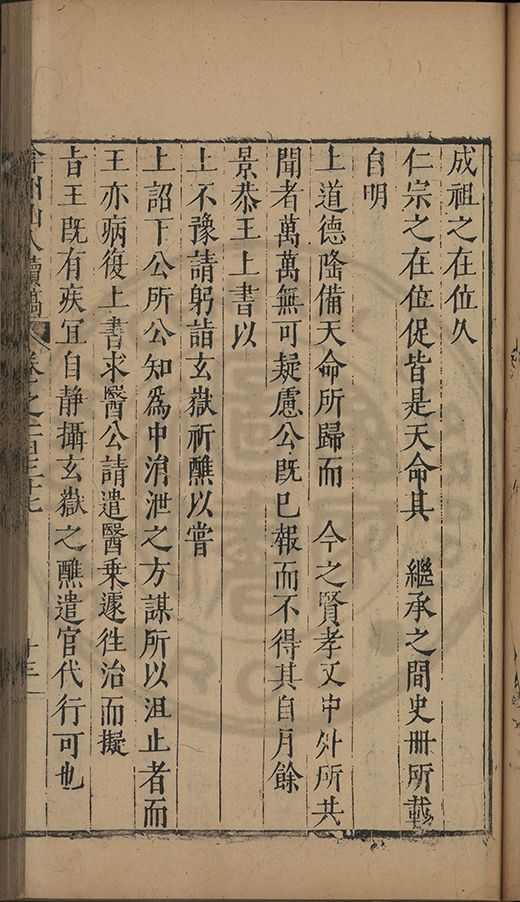 成祖之在位久
仁宗之在位促皆是天命其　繼承之間史冊所載
自明
上道德隆備天命所歸而　今之賢孝又中外所共
聞者萬萬無可疑慮公既已報而不得其自月餘
景恭王上書以
上不豫請躬詣玄嶽祈醮以嘗
上詔下公所公知為中涓泄之方謀所以沮止者而
王亦病復上書求醫公請遣醫乘遽徃治而擬
旨王既有疾宜自静攝玄嶽之醮遣官代行可也
山人續稿 卷之一百三十七 十三